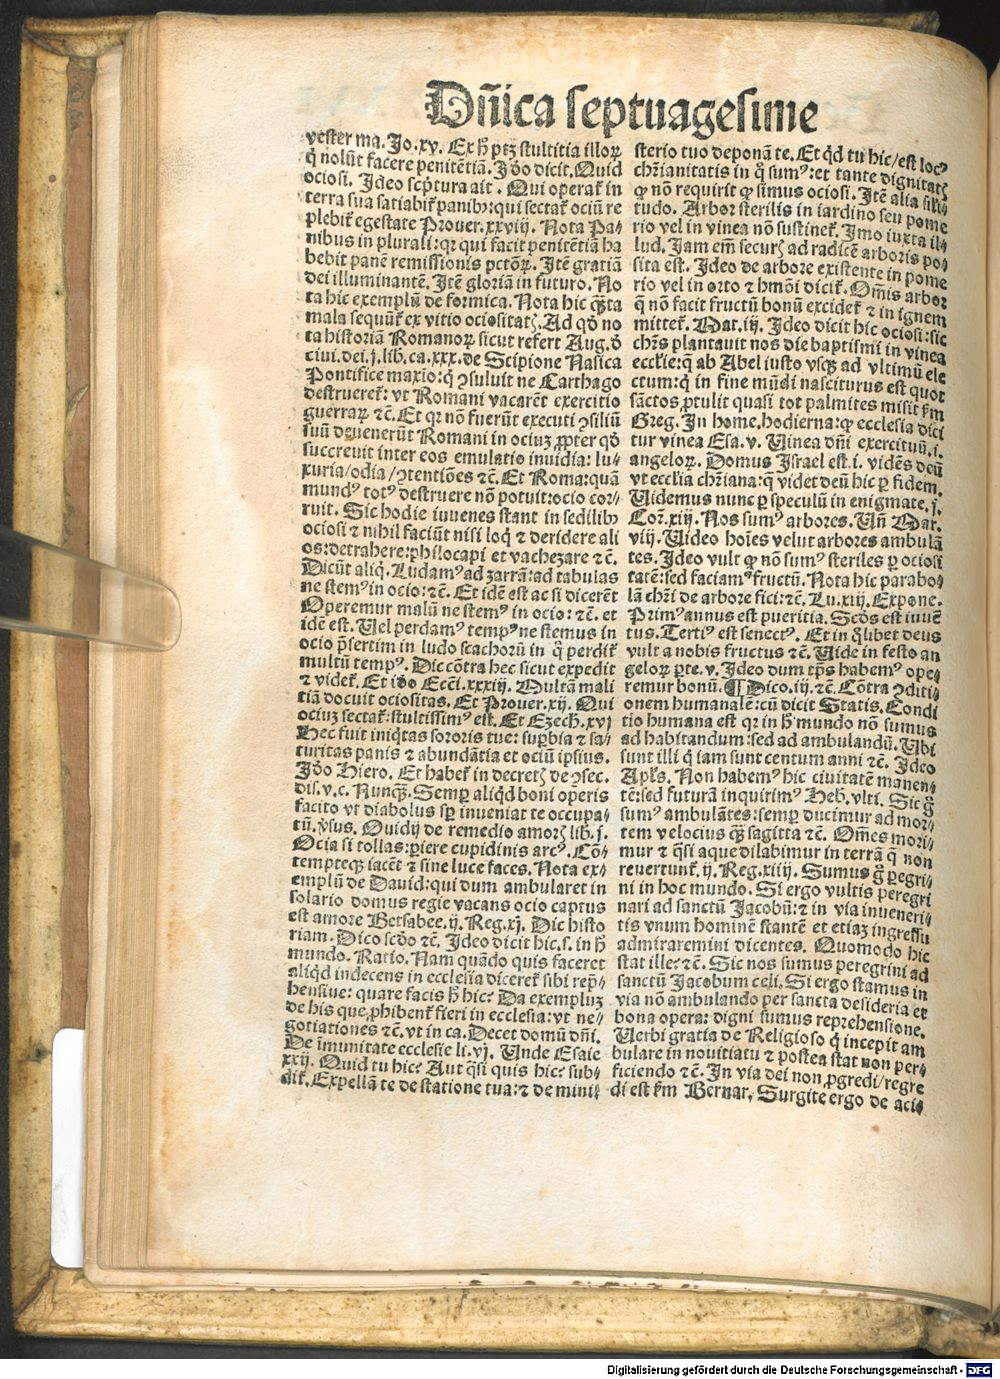 Dñica septuagesime
vester ma. Jo.xv. Ex hͦ ptꝫ stultitia illoꝝ
q̇ nolũt facere penitẽtiã. Jdͦo dicit. Quid
ociosi. Jdeo scp̃tura ait. Qui operat᷑ in
terra sua satiabit᷑ panibꝰ: qui sectat᷑ ociũ re
plebit᷑ egestate Prouer.xxviij. Nota Pa-
nibus in plurali: qꝛ qui facit penitẽtiã ha
bebit panẽ remissionis pctõꝝ. Jtẽ gratiã
dei illuminantẽ. Jtẽ gloriã in futuro. No
ta hic exemplũ de formica. Nota hic qͣ̃ta
mala sequũt᷑ ex vitio ociositatꝭ. Ad qðͦ no
ta historiã Romanoꝝ sicut refert Aug. ð
ciui.dei.j.lib.ca.xxx.de Scipione Nasica
Pontifice maxio: q̇ ꝯsuluit ne Carthago
destrueret᷑: vt Romani vacarẽt exercitio
guerraꝝ ⁊c̃. Et qꝛ nõ fuerũt executi ꝯsiliũ
suũ deuenerũt Romani in ociuꝫ ꝓpter qðͦ
succreuit inter eos emulatio inuidia: lu-
xuria/odia/ꝯtentiões ⁊c̃. Et Roma: quã
mundꝰ totꝰ destruere nõ potuit: ocio cor-
ruit. Sic hodie iuuenes stant in sedilibꝰ
ociosi ⁊ nihil faciũt nisi loq̇ ⁊ deridere ali
os: detrahere: philocapi et vachezare ⁊c̃.
Dicũt aliq̇. Ludamꝰ ad zarrã: ad tabulas
ne stemꝰ in ocio: ⁊c̃. Et idẽ est ac si dicerẽt
Operemur malũ ne stemꝰ in ocio: ⁊c̃. et
idẽ est. Vel perdamꝰ tempꝰ ne stemus in
ocio p̃sertim in ludo scachorũ in q̊ perdit᷑
multũ tempꝰ. Dic cõtra hec sicut expedit
⁊ videt᷑. Et idͦo Ecc̃i.xxxiij. Multã mali
tiã docuit ociositas. Et Prouer.xij. Qui
ociuꝫ sectat᷑: stultissimꝰ est. Et Ezech.xvj
Hec fuit iniq̇tas sororis tue: suꝑbia ⁊ sa-
turitas panis ⁊ abundãtia et ociũ ipsius.
Jdͦo Hiero. Et habet᷑ in decretꝭ de ꝯsec.
dis.v.c. Nunqͣꝫ. Semꝑ aliq̇d boni operis
facito vt diabolus sp̃ inueniat te occupa-
tũ. v̓sus. Ouidij de remedio amorꝭ lib.j.
Ocia si tollas: ꝑiere cupidinis arcꝰ. Cõ-
tempteqꝫ iacẽt ⁊ sine luce faces. Nota ex-
emplũ de Dauid: qui dum ambularet in
solario domus regie vacans ocio captus
est amore Betsabee.ij.Reg.xj. Dic histo
riam. Dico scðo ⁊c̃. Jdeo dicit hic.s.in hͦ
mundo. Ratio. Nam quãdo quis faceret
aliq̇d indecens in ecclesia diceret᷑ sibi rep̃-
hensiue: quare facis hͦ hic? Da exempluꝫ
de his que ꝓhibent᷑ fieri in ecclesia: vt ne-
gotiationes ⁊c̃. vt in ca. Decet domũ dñi.
De ĩmunitate ecclesie li.vj. Unde Esaie
xxij. Quid tu hic? Aut qͣsi quis hic? sub-
dit᷑. Expellã te de statione tua: ⁊ de mini-
sterio tuo deponã te. Et q̇d tu hic/est locꝰ
chr̃ianitatis in q̊ sumꝰ: et tante dignitatꝭ
ꝙ nõ requirit ꝙ simus ociosi. Jtẽ alia sili-
tudo. Arbor sterilis in iardino seu pome
rio vel in vinea nõ sustinet᷑. Jmo iuxta il-
lud. Jam em̃ securꝭ ad radicẽ arboris po-
sita est. Jdeo de arbore existente in pome
rio vel in orto ⁊ hmõi dicit᷑. Om̃is arbor
q̃ nõ facit fructũ bonũ excidet᷑ ⁊ in ignem
mittet᷑. Mat.iij. Jdeo dicit hic ociosi: sic
chr̃s plantauit nos die baptismi in vinea
eccl̃ie: q̃ ab Abel iusto vsqꝫ ad vltimũ ele
ctum: q̇ in fine mũdi nasciturus est quot
sãctos ꝓtulit quasi tot palmites misit ẜm
Greg. Jn home.hodierna: ꝙ ecclesia dici
tur vinea Esa.v. Vinea dñi exercituũ.i.
angeloꝝ. Domus Jsrael est.i. vidẽs deũ
vt eccl̃ia chr̃iana: q̃ videt deũ hic ꝑ fidem.
Videmus nunc ꝑ speculũ in enigmate.j.
Coꝛ.xiij. Nos sumꝰ arbores. Uñ Mar.
viij. Video hoĩes velut arbores ambulã
tes. Jdeo vult ꝙ nõ sumꝰ steriles ꝑ ociosi
tatẽ: sed faciamꝰ fructũ. Nota hic parabo-
lã chr̃i de arbore fici: ⁊c̃. Lu.xiij. Expone.
Primꝰ annus est pueritia. Scðs est iuuẽ
tus. Tertiꝰ est senectꝰ. Et in q̊libet deus
vult a nobis fructus ⁊c̃. Vide in festo an
geloꝝ ꝑte.v. Jdeo dum tp̃s habemꝰ ope-
remur bonũ. ¶ Dico.iij.⁊c̃. Cõtra ꝯditi-
onem humanalẽ: cũ dicit Statis. Condi
tio humana est qꝛ in hͦ mundo nõ sumus
ad habitandum: sed ad ambulandũ. Ubi
sunt illi q̇ iam sunt centum anni ⁊c̃. Jdeo
Apl̃s. Non habemꝰ hic ciuitatẽ manen-
tẽ: sed futurã inquirimꝰ Heb.vlti. Sic g̊
sumꝰ ambulãtes: semꝑ ducimur ad mor-
tem velocius qͣꝫ sagitta ⁊c̃. Om̃es mori-
mur ⁊ qͣsi aque dilabimur in terrã q̃ non
reuertunt᷑.ij.Reg.xiiij. Sumus g̊ ꝑegri-
ni in hoc mundo. Si ergo vultis peregri
nari ad sanctũ Jacobũ: ⁊ in via inueneri-
tis vnum hominẽ stantẽ et etiaꝫ ingressu
admiraremini dicentes. Quomodo hic
stat ille? ⁊c̃. Sic nos sumus peregrini ad
sanctũ Jacobum celi. Si ergo stamus in
via nõ ambulando per sancta desideria et
bona opera: digni sumus reprehensione.
Verbi gratia de Religioso q̇ incepit am
bulare in nouitiatu ⁊ postea stat non per-
ficiendo ⁊c̃. Jn via dei non ꝓgredi/regre
di est ẜm Bernar. Surgite ergo de aci-
Digitalisierung gefördert durch die Deutsche Forschungsgemeinschaft - DFG